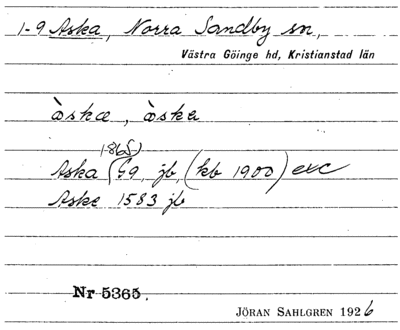 1-9 Aska, Norra Sandby sn,
Västra Göinge hd, Kristianstad län
àskæ, àska
1865)
Aska (G9, jb, (kb 1900) etc
Aske 1583 jb
Nr 5365.
JÖRAN SAHLGREN 1926